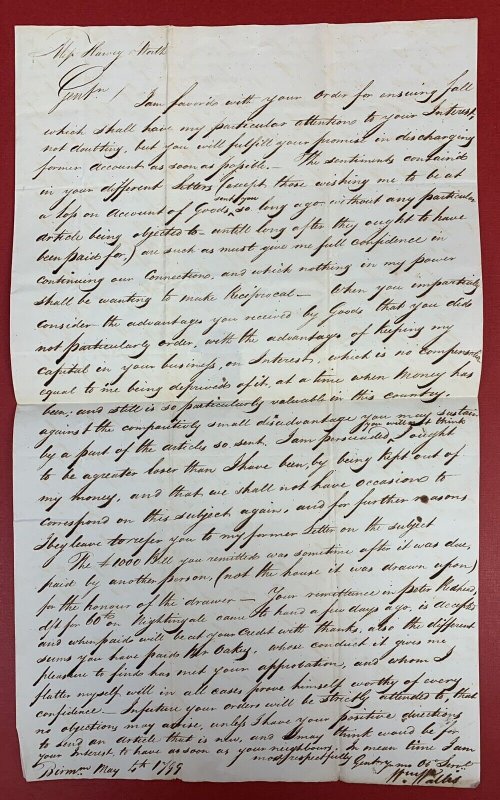 Mess. Harvey & Worth
Gentn /
I am favored with your Order for ensuing fall
which shall have my particular attention to your Interest,
not doubting, but you will fulfill your promise in discharging
former Account as soon as possible. — The sentiments contain'd
in your different Letters (except those wishing me to be at
a loss on account of Goods sent you so long ago without any particular
article being objected to untill long after they ought to have
been paid for,) are such as must give me full confidence in
continuing our Connection, and which nothing in my power
shall be wanting to make Reciprocal — When you impartially
consider the advantage you received by Goods that you did
not particularly order, with the advantage of keeping my
Capital in your business, on Interest, which is no compensation
equal to me being deprived of it, at a time when Money has
been, and still is so particularly valuable in this country.
against the comparitively small disadvantage you may sustain
by a part of the articles so sent. I am persuaded, you will not think I ought
to be a greater loser than I have been, by being kept out of
my money, and that we shall not have occasion to
correspond on this subject again, and for further reasons
I beg leave to refer you to my former Letter on the subject
The £1000 Bill you remitted was sometime after it was due,
paid by another person (not the house it was drawn upon)
for the honour of the drawer — Your remittance in Peter
dft for 60 on Nightingale came to hand a few days ago, is accepted
and when paid will be at your Credit with thanks, also the different
sums you have paid Mr Oakey, whose conduct it gives me
pleasure to find has met your approbation, and whom I
flatter myself will in all cases prove himself worthy of every
confidence — In future your orders will be strictly attended to, that
no objections may arise, unless I have your positive directions
to send an article that is new, and I may think would be for
your Interest, to have as soon as your neighbours, in mean time I am
most respectfully Gentn your Ob. Servt.
Birmm May 4th 1799
Wm Wallis